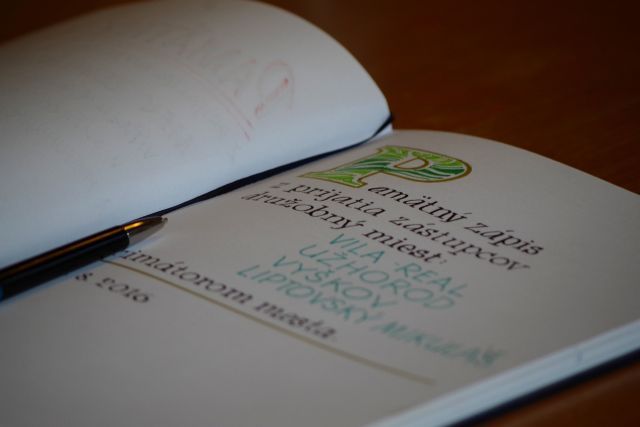 Pamätný zápis
z prijatia zástupcov
družobný miest:
VILA REAL
UŽHOROD
VYŠKOV
LIPTOVSKÝ MIKULÁŠ
imátorom mesta
8. 2016